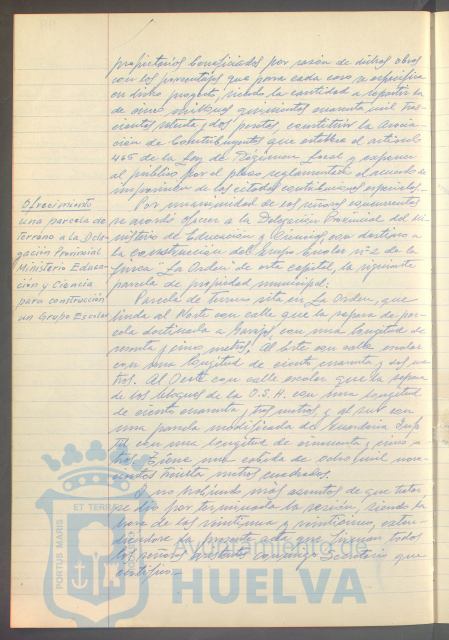 propietarios beneficiados por razón de dichas obras
con los porcentajes que para cada caso se especifica
en dicho proyecto, siendo la cantidad a repartir la
de cinco millones quinientas cuarenta mil tres-
cientas setenta y dos pesetas, constituir la Asocia-
ción de Contribuyentes que establece el artículo
465 de la Ley de Régimen Local y exponer
al público por el plazo reglamentario el acuerdo de
imposición de las citadas contribuciones especiales.-
Por unanimidad de los señores concurrentes
se acordó ofrecer a la Delegación Provincial del Mi-
nisterio de Educación y Ciencia, con destino a
la construcción del Grupo Escolar nº 2 de la
finca La Orden de esta capital, la siguiente
parcela de propiedad municipal:
Ofrecimiento
una parcela de
terreno a la Dele-
gación Provincial
Ministerio Educa-
ción y Ciencia
para construcción
un Grupo Escolar
Parcela de terreno sita en La Orden, que
linda al Norte con calle que la separa de par-
cela destinada a Garajes con una longitud de
sesenta y cinco metros; Al Este con calle escolar
con una longitud de ciento cuarenta y dos me-
tros. Al Oeste con calle escolar que la separa
de los bloques de la O.S.H. con una longitud
de ciento cuarenta y tres metros y al sur con
una parcela modificada de Guardería Infan-
til con una longitud de cincuenta y cinco me-
tros. Tiene una cabida de ocho mil nove-
cientos treinta metros cuadrados.
Y no habiendo más asuntos de que tratar,
se dio por terminada la sesión, siendo la
hora de las veintiuna y veinticinco, exten-
diéndose la presente acta que firman todos
los señores asistentes conmigo Secretario que
certifico.-
PORTUS MARIS
ET TERRAE
Ayuntamiento de
HUELVA